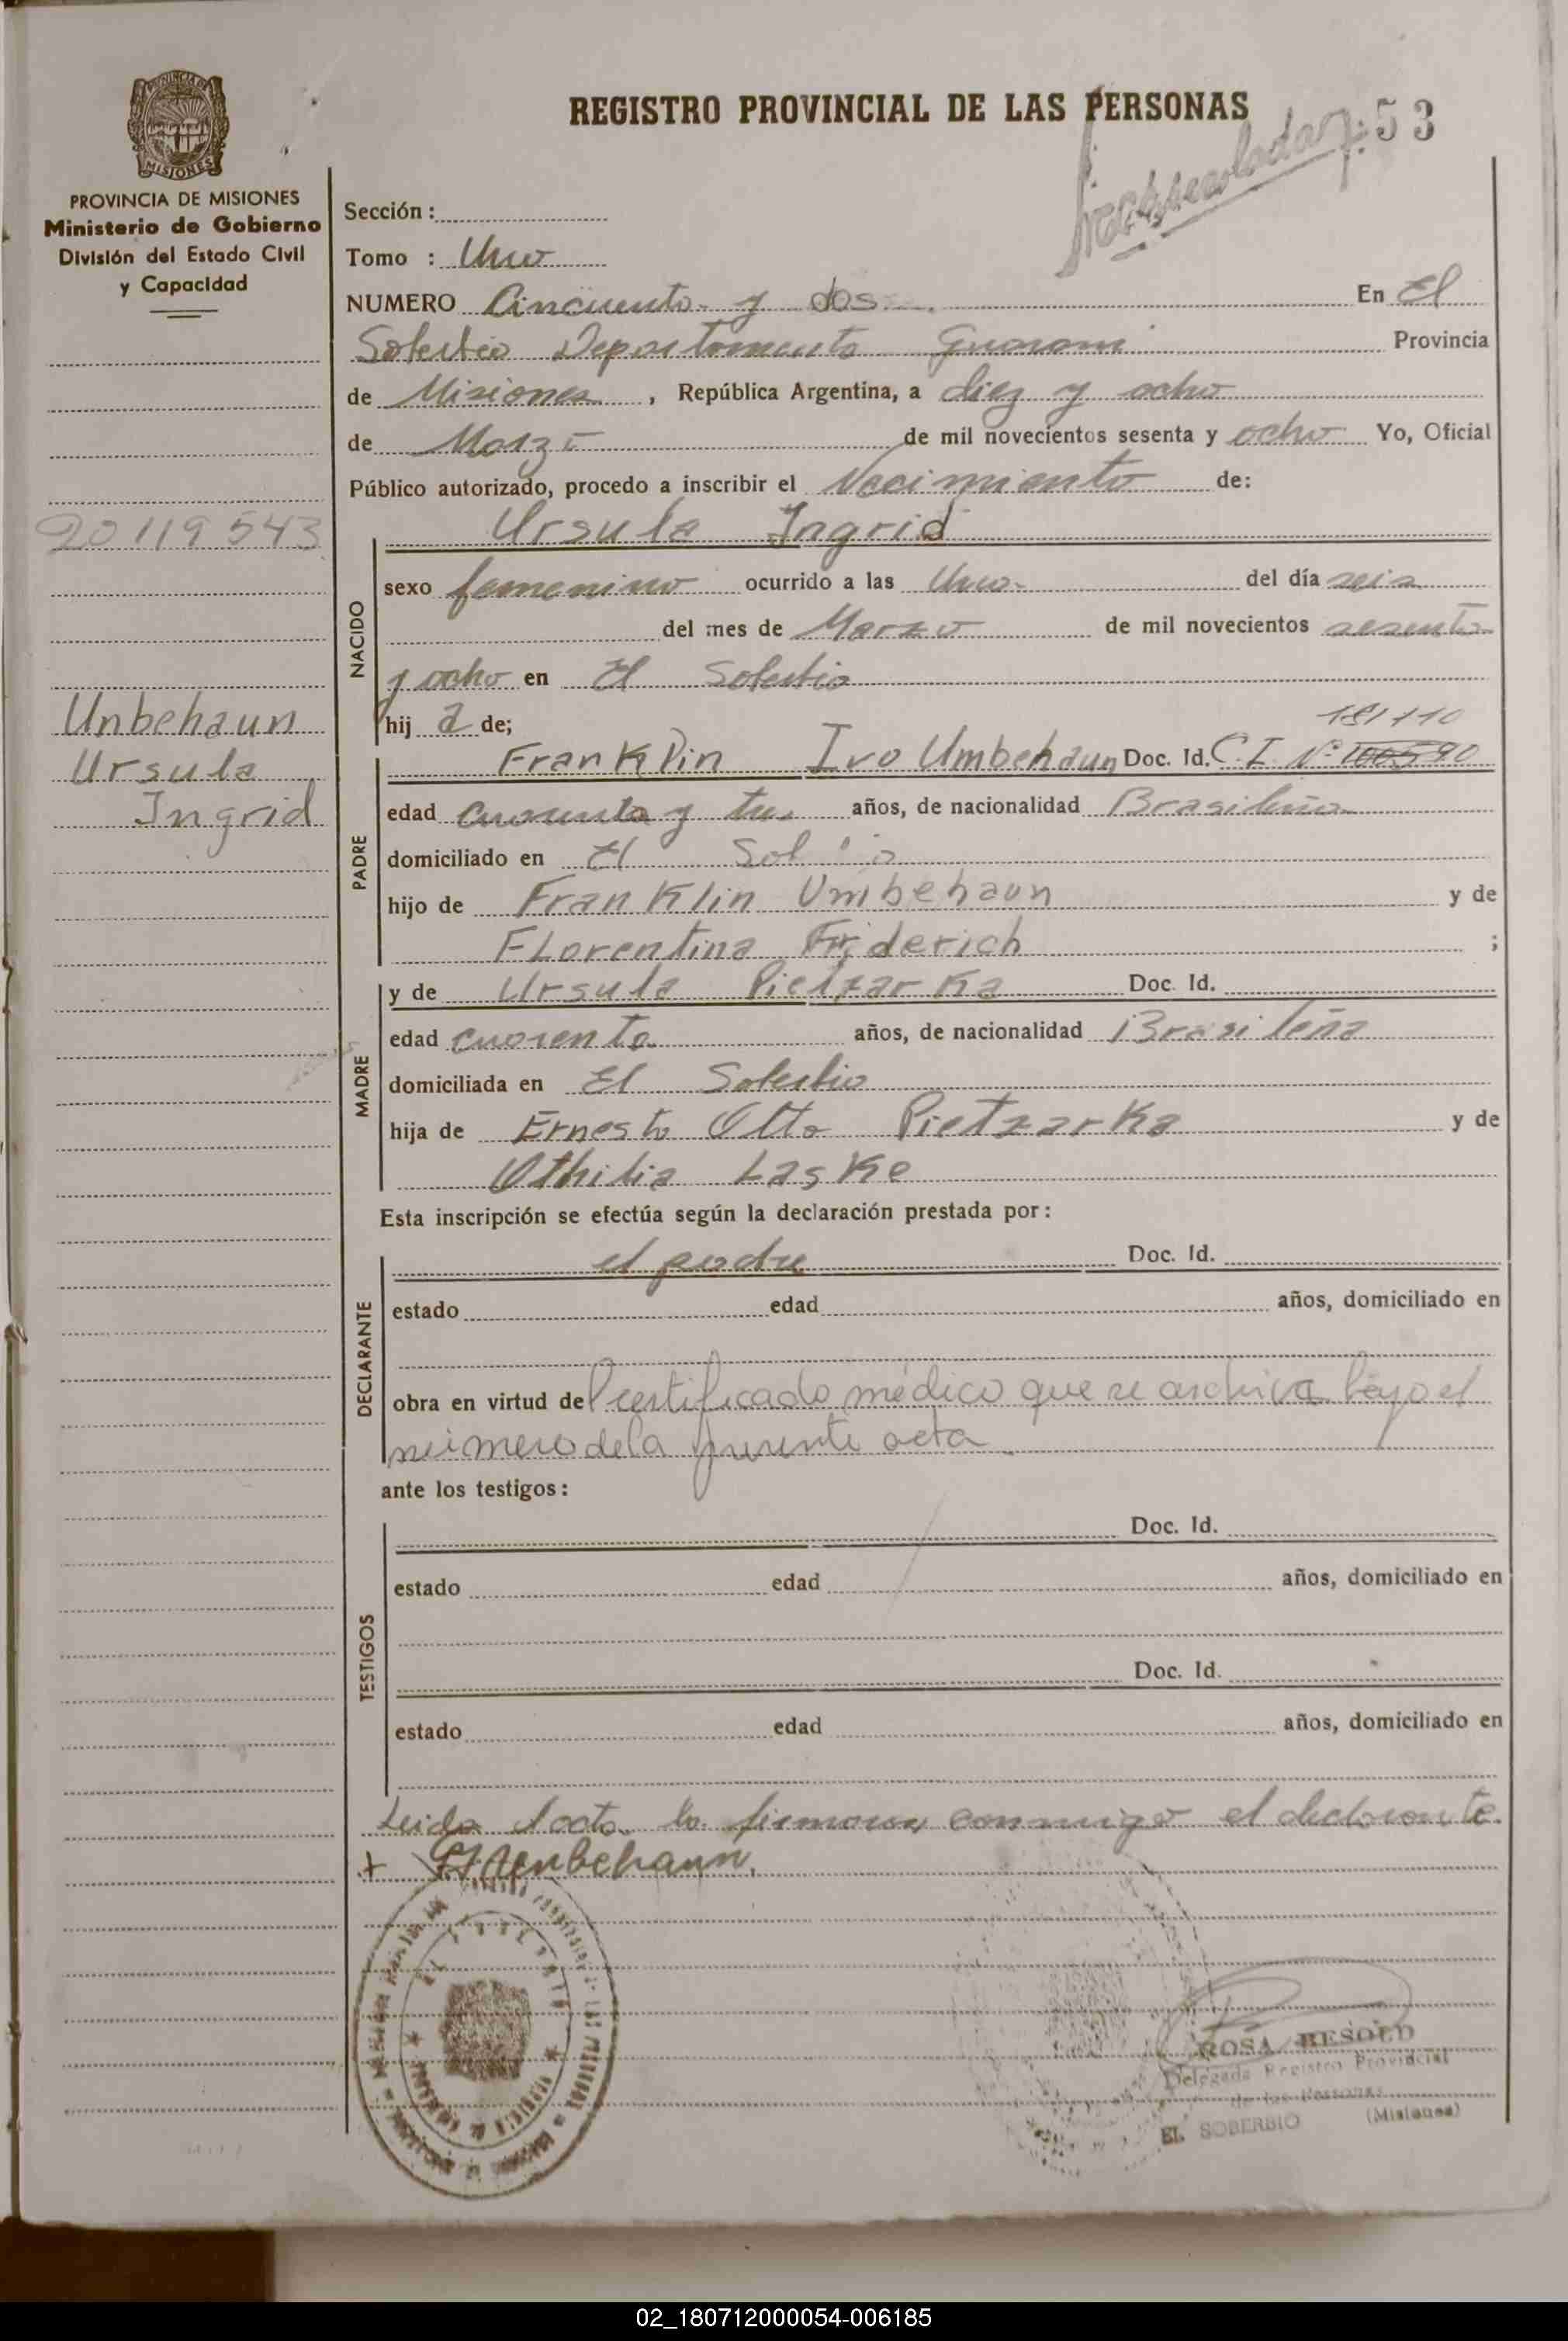 PROVINCIA DE MISIONES
Ministerio de Gobierno
División del Estado Civil
y Capacidad
20119543
Unbehaun
Ursula
Ingrid
REGISTRO PROVINCIAL DE LAS PERSONAS
53
Sección :
Tomo : Uno
NUMERO Cincuenta y dos En El
Soberbio Departamento Guarani Provincia
de Misiones , República Argentina, a diez y ocho
de Marzo de mil novecientos sesenta y ocho Yo, Oficial
Público autorizado, procedo a inscribir el Nacimiento de:
Ursula Ingrid
NACIDO
sexo femenino ocurrido a las Uno del día seis
del mes de Marzo de mil novecientos sesenta
y ocho en El Soberbio
hij a de;
181110
Franklin Ivo Umbehaun Doc. Id. C.I. Nº
PADRE
edad cuarenta y tres años, de nacionalidad Brasileña
domiciliado en El
hijo de Franklin Umbehaun y de
Florentina Friderich ;
y de Ursula Pietzarka Doc. Id.
MADRE
edad cuarenta años, de nacionalidad Brasileña
domiciliada en El Soberbio
hija de Ernesto Otto Pietzarka y de
Othilia Laske
Esta inscripción se efectúa según la declaración prestada por :
el padre Doc. Id.
DECLARANTE
estado edad años, domiciliado en
obra en virtud del certificado médico que se archiva bajo el
número de la presente acta
ante los testigos :
Doc. Id.
TESTIGOS
estado edad años, domiciliado en
Doc. Id.
estado edad años, domiciliado en
Leida el acta la firman conmigo el declarante.
+
ROSA RESOLD
Delegada Registro Provincial
de las Personas
EL SOBERBIO (Misiones)
02_180712000054-006185